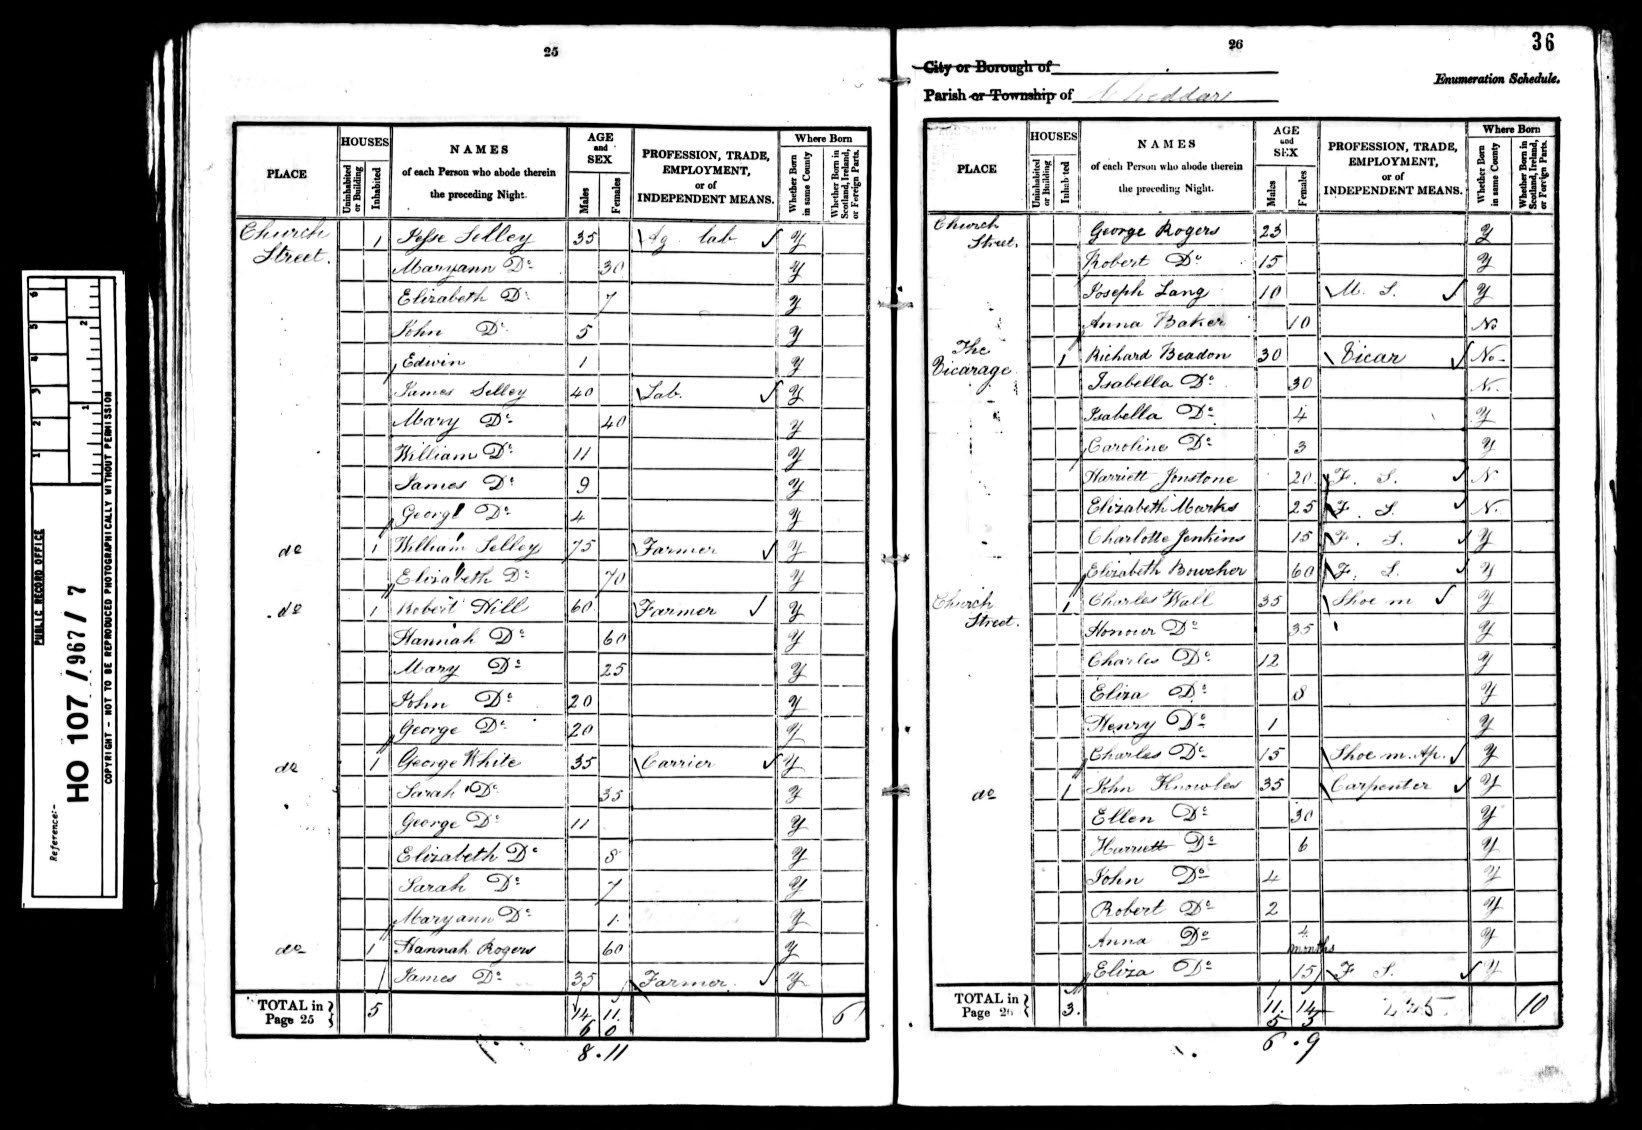 25
PLACE
HOUSES
Uninhabited or Building
Inhabited
NAMES
of each Person who abode therein
the preceding Night.
AGE and SEX
Males
Females
PROFESSION, TRADE,
EMPLOYMENT,
or of
INDEPENDENT MEANS.
Where Born
Whether Born in same County
Whether Born in Scotland, Ireland, or Foreign Parts.
Church Street. 1 Jesse Selley 35 Ag. lab Y
Maryann Do 30 Y
Elizabeth Do 7 Y
John Do 5 Y
Edwin 1 Y
James Selley 40 Lab. Y
Mary Do 40 Y
William Do 11 Y
James Do 9 Y
George Do 4 Y
do 1 William Selley 75 Farmer Y
Elizabeth Do 70 Y
do 1 Robert Hill 60 Farmer Y
Hannah Do 60 Y
Mary Do 25 Y
John Do 20 Y
George Do 20 Y
do 1 George White 35 Carrier Y
Sarah Do 35 Y
George Do 11 Y
Elizabeth Do 8 Y
Sarah Do 7 Y
Maryann Do 1 Y
do 1 Hannah Rogers 60 Y
James Do 35 Farmer Y
TOTAL in Page 25 5 14 11 6
6 0
8 . 11
26
36
City or Borough of
Enumeration Schedule.
Parish or Township of Cheddar
PLACE
HOUSES
Uninhabited or Building
Inhabited
NAMES
of each Person who abode therein
the preceding Night.
AGE and SEX
Males
Females
PROFESSION, TRADE,
EMPLOYMENT,
or of
INDEPENDENT MEANS.
Where Born
Whether Born in same County
Whether Born in Scotland, Ireland, or Foreign Parts.
Church Street. George Rogers 23 Y
Robert Do 15 Y
Joseph Lang 10 M. S. Y
Anna Baker 10 No
The Vicarage 1 Richard Beadon 30 Vicar No
Isabella Do 30 N.
Isabella Do 4 Y
Caroline Do 3 Y
Harriett Jonstone 20 F. S. N
Elizabeth Marks 25 F. S. N.
Charlotte Jenkins 15 F. S. Y
Elizabeth Bowcher 60 F. S. Y
Church Street. 1 Charles Wall 35 Shoe m Y
Honour Do 35 Y
Charles Do 12 Y
Eliza Do 8 Y
Henry Do 1 Y
Charles Do 15 Shoe m. Ap. Y
do 1 John Knowles 35 Carpenter Y
Ellen Do 30 Y
Harriett Do 6 Y
John Do 4 Y
Robert Do 2 Y
Anna Do 4 months Y
Eliza Do 15 F. S. Y
TOTAL in Page 26 3. 11. 14 10
5 5
6 . 9
PUBLIC RECORD OFFICE
Reference:-
HO 107 / 967 / 7
COPYRIGHT - NOT TO BE REPRODUCED PHOTOGRAPHICALLY WITHOUT PERMISSION
1 2 3 4 5 6
1 2